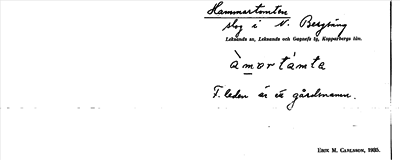 Hammartomten
skog i N. Bergsäng
Leksands sn, Leksands och Gagnefs tg, Kopparbergs län.
àmortámta
F. leden är ej gårdsnamn.
ERIK M. CARLSSON, 1935.